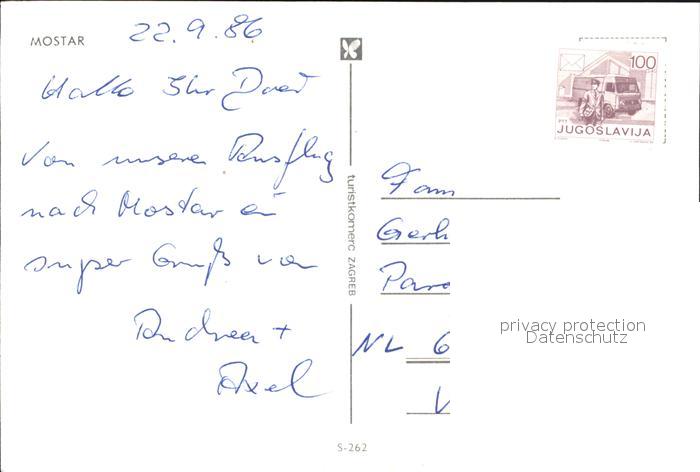 MOSTAR
22.9.86
Hallo Ihr Zwei
Von unserem Ausflug
nach Mostar ein
super Gruß von
Andrea +
Axel
turistkomerc ZAGREB
100
PTT
JUGOSLAVIJA
Fam
Gerh
NL 6
V
privacy protection
Datenschutz
S-262